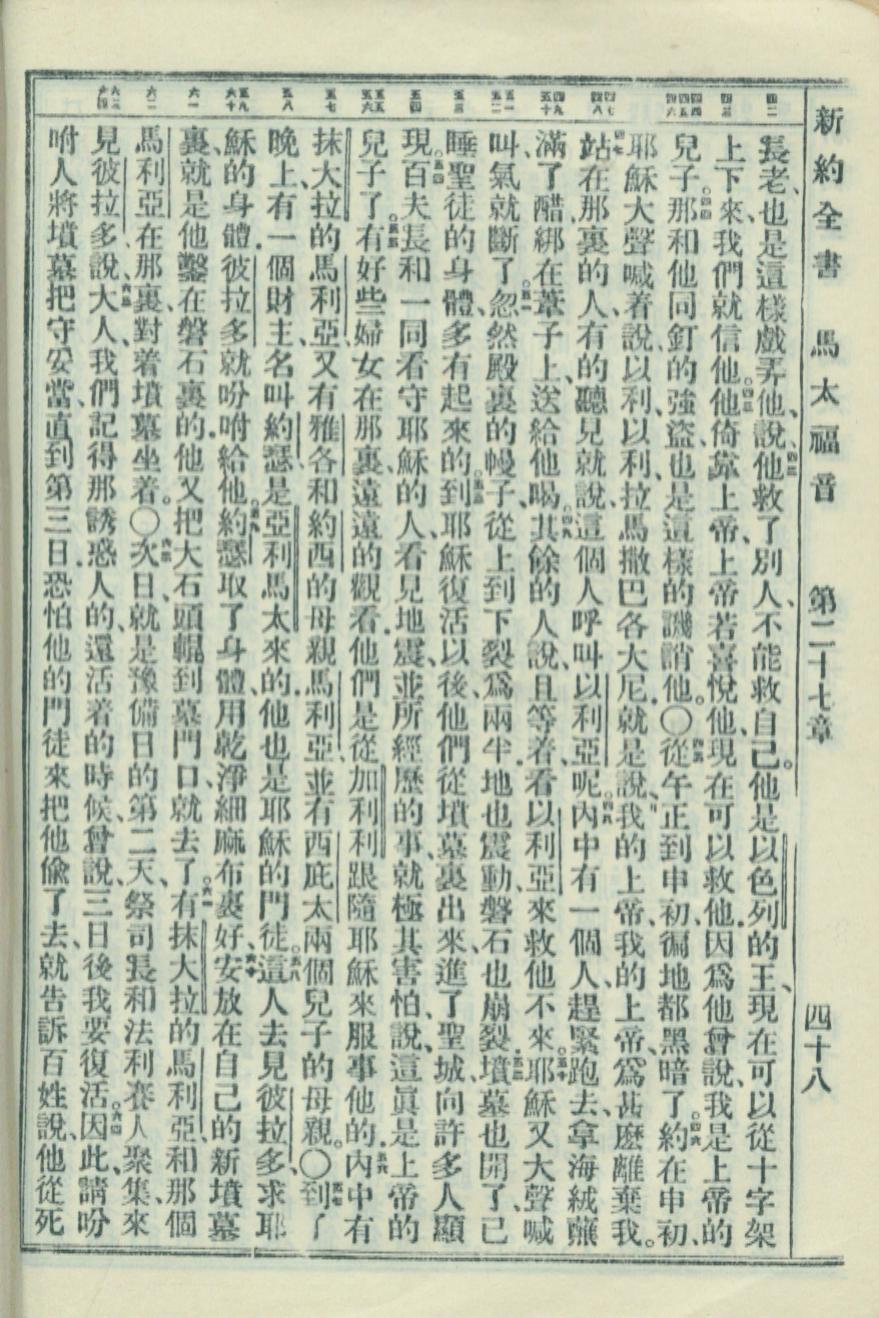 新約全書 馬太福音 第二十七章 四十八
長老、也是這樣戲弄他、說、他救了別人、不能救自己。他是以色列的王、現在可以從十字架
上下來、我們就信他。他倚靠上帝、上帝若喜悅他、現在可以救他、因爲他曾說、我是上帝的
兒子。那和他同釘的強盜、也是這樣的譏誚他。○從午正到申初、徧地都黑暗了。約在申初、
耶穌大聲喊着說、以利以利拉馬撒巴各大尼、就是說、我的上帝、我的上帝、爲甚麽離棄我。
站在那裏的人、有的聽見就說、這個人呼叫以利亞呢。內中有一個人、趕緊跑去、拿海絨蘸
滿了醋、綁在葦子上、送給他喝。其餘的人說、且等着、看以利亞來救他不來。耶穌又大聲喊
叫、氣就斷了。忽然殿裏的幔子、從上到下裂爲兩半．地也震動、磐石也崩裂．墳墓也開了、已
睡聖徒的身體、多有起來的．到耶穌復活以後、他們從墳墓裏出來、進了聖城、向許多人顯
現。百夫長和一同看守耶穌的人、看見地震、並所經歷的事、就極其害怕、說、這眞是上帝的
兒子了。有好些婦女在那裏、遠遠的觀看．他們是從加利利跟隨耶穌來服事他的．內中有
抹大拉的馬利亞、又有雅各和約西的母親馬利亞、並有西庇太兩個兒子的母親。○到了
晚上、有一個財主、名叫約瑟、是亞利馬太來的．他也是耶穌的門徒。這人去見彼拉多、求耶
穌的身體．彼拉多就吩咐給他。約瑟取了身體、用乾淨細麻布裹好、安放在自己的新墳墓
裏、就是他鑿在磐石裏的．他又把大石頭輥到墓門口、就去了。有抹大拉的馬利亞、和那個
馬利亞在那裏、對着墳墓坐着。○次日、就是豫備日的第二天、祭司長和法利賽人聚集、來
見彼拉多、說、大人、我們記得那誘惑人的、還活着的時候、曾說、三日後我要復活。因此、請吩
咐人將墳墓把守妥當、直到第三日．恐怕他的門徒來把他偷了去、就告訴百姓說、他從死